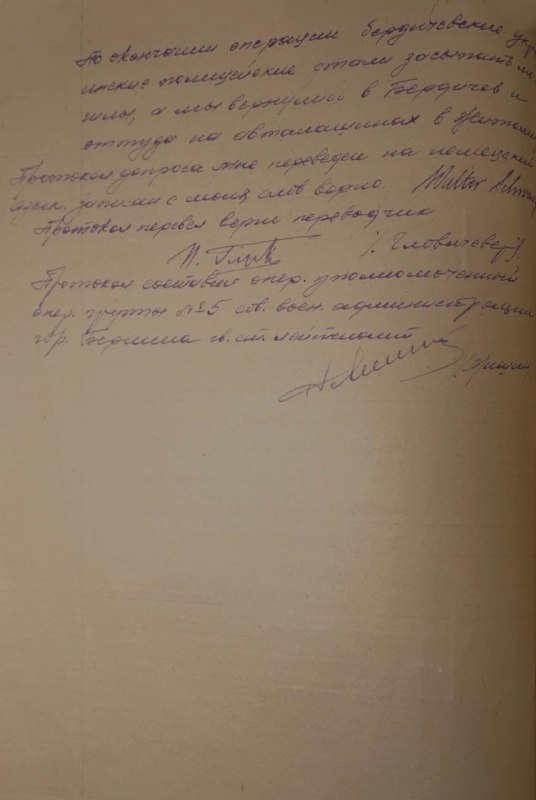 По окончании операции бердичевские укра
инские полицейские стали засыпать мо
гилы, а мы вернулись в Бердичев и
оттуда на автомашинах в Житомир
Протокол допроса мне переведен на немецкий
язык. записан с моих слов верно. Walter
Протокол перевел верно переводчик
Протокол составил опер. уполномоченный
опер. группы №5 сов. воен. администрации
гор. Берлина гв. ст. лейтенант